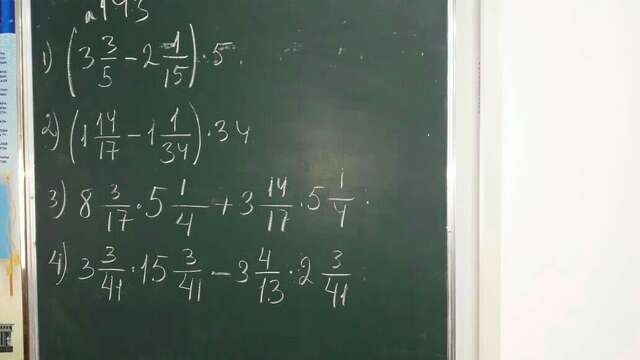 193
1) (3 3/5 - 2 1/15) · 5
2) (1 14/17 - 1 1/34) · 34
3) 8 3/17 · 5 1/4 + 3 14/17 · 5 1/4
4) 3 3/41 · 15 3/41 - 3 4/13 · 2 3/41